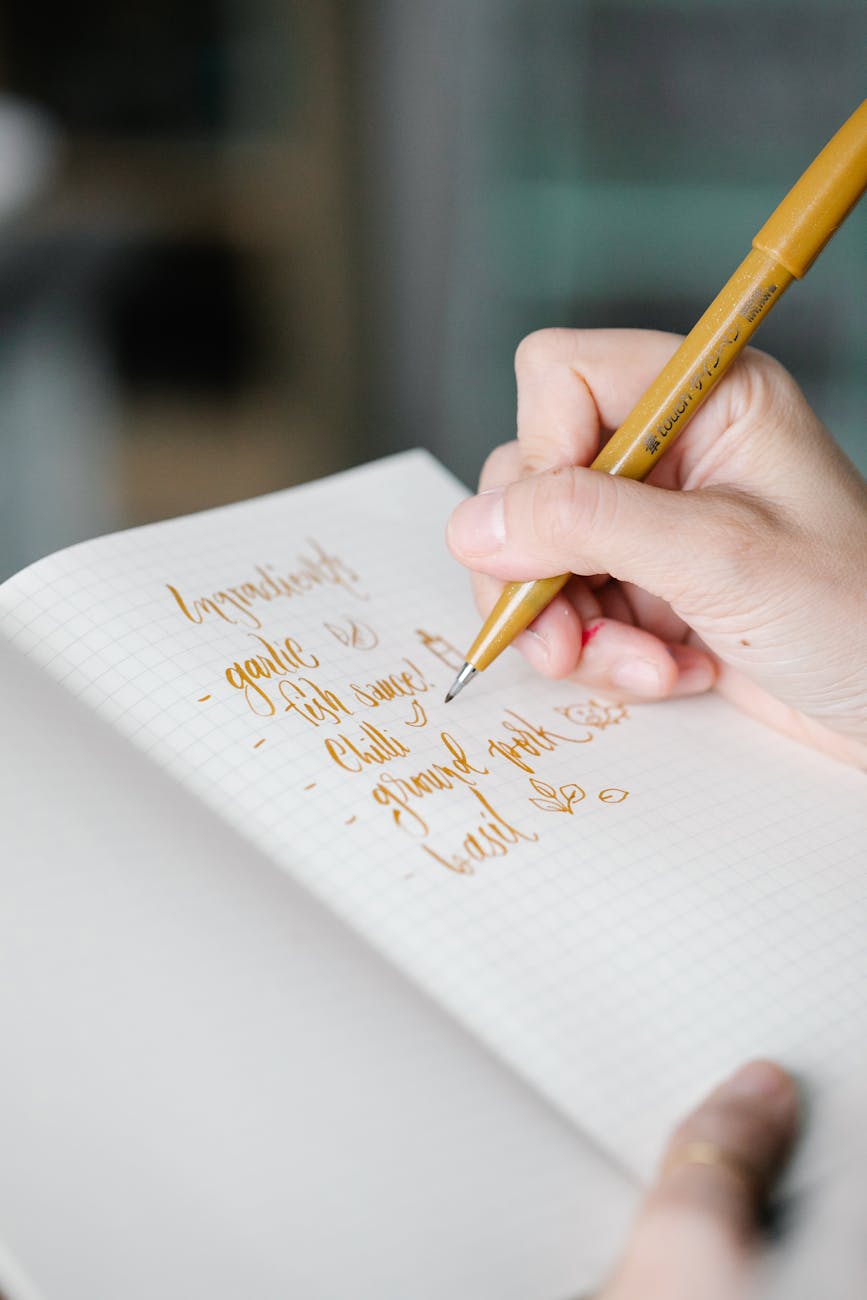 Ingredients
- garlic
- fish sauce!
- Chilli
- ground pork
- basil
touch